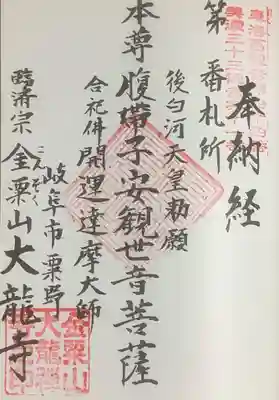 奉納経
第　番札所
後白河天皇勅願
本尊腹帯子安観世音菩薩
合祀併開運達摩大師
岐阜市粟野
臨済宗金粟山大龍寺
こんぞく
金粟山
大龍禅
寺印